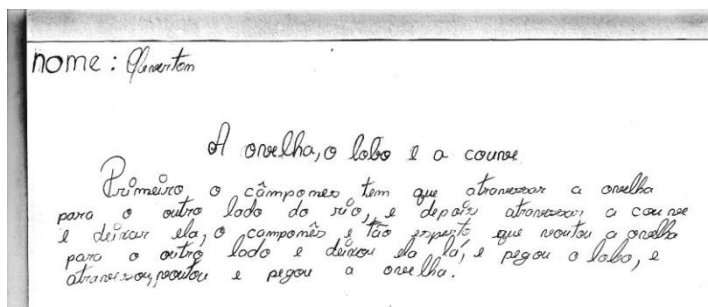 nome: Cleverton
A ovelha, o lobo e a couve
Primeiro o câmpones tem que atravessar a ovelha
para o outro lado do rio, e depois atravessar a couve
e deixar ela, o camponês e tão esperto que voutou a ovelha
para o outro lado e deixou ela lá, e pegou o lobo, e
atravessou, voutou e pegou a ovelha.